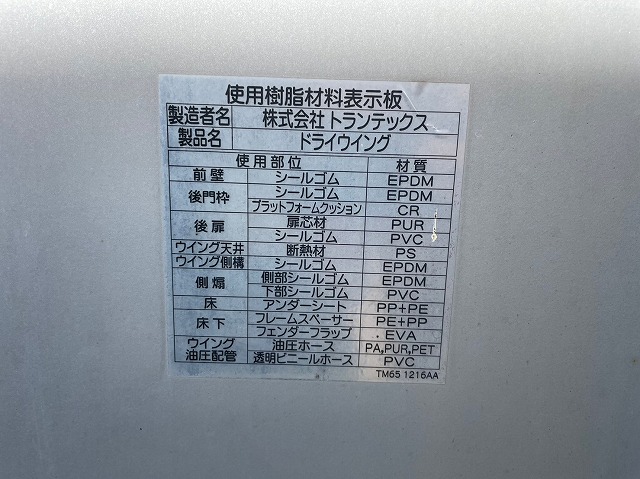 使用樹脂材料表示板
製造者名 株式会社 トランテックス
製品名 ドライウイング
使用部位 材質
前壁 シールゴム EPDM
後門枠 シールゴム EPDM
プラットフォームクッション CR
後扉 扉芯材 PUR
シールゴム PVC
ウイング天井 断熱材 PS
ウイング側構 シールゴム EPDM
側煽 側部シールゴム EPDM
下部シールゴム PVC
床 アンダーシート PP+PE
床下 フレームスペーサー PE+PP
フェンダーフラップ EVA
ウイング 油圧配管 油圧ホース PA,PUR,PET
透明ビニールホース PVC
TM65 1216AA